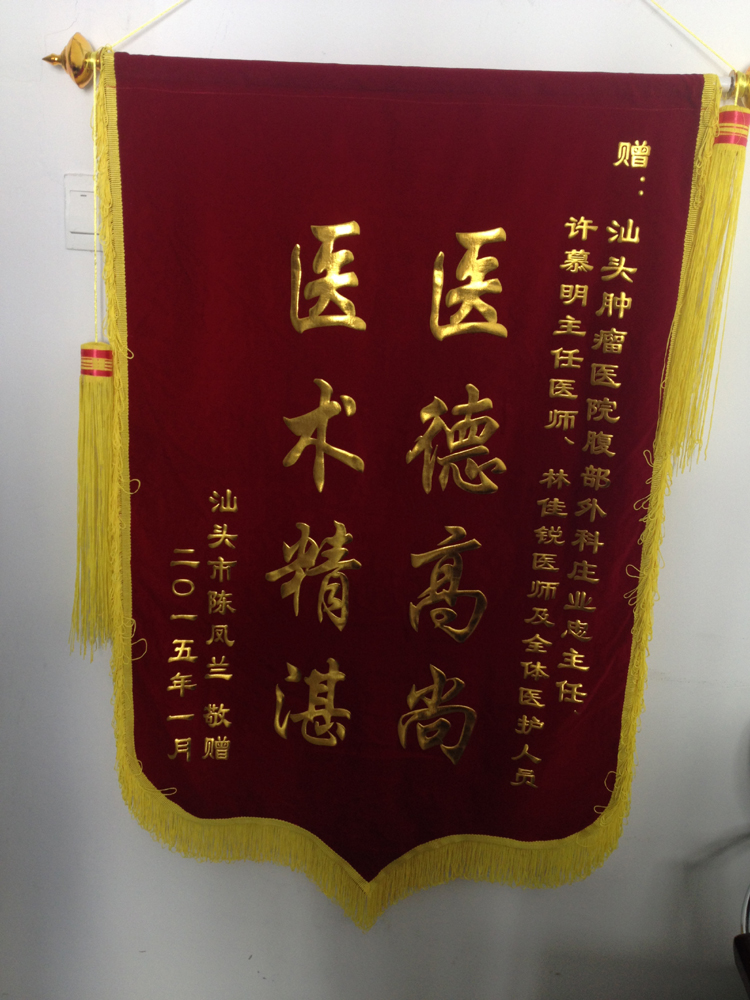 赠：
汕头肿瘤医院腹部外科庄业忠主任、
许慕明主任医师、林佳锐医师及全体医护人员
医德高尚
医术精湛
汕头市陈凤兰 敬赠
二〇一五年一月